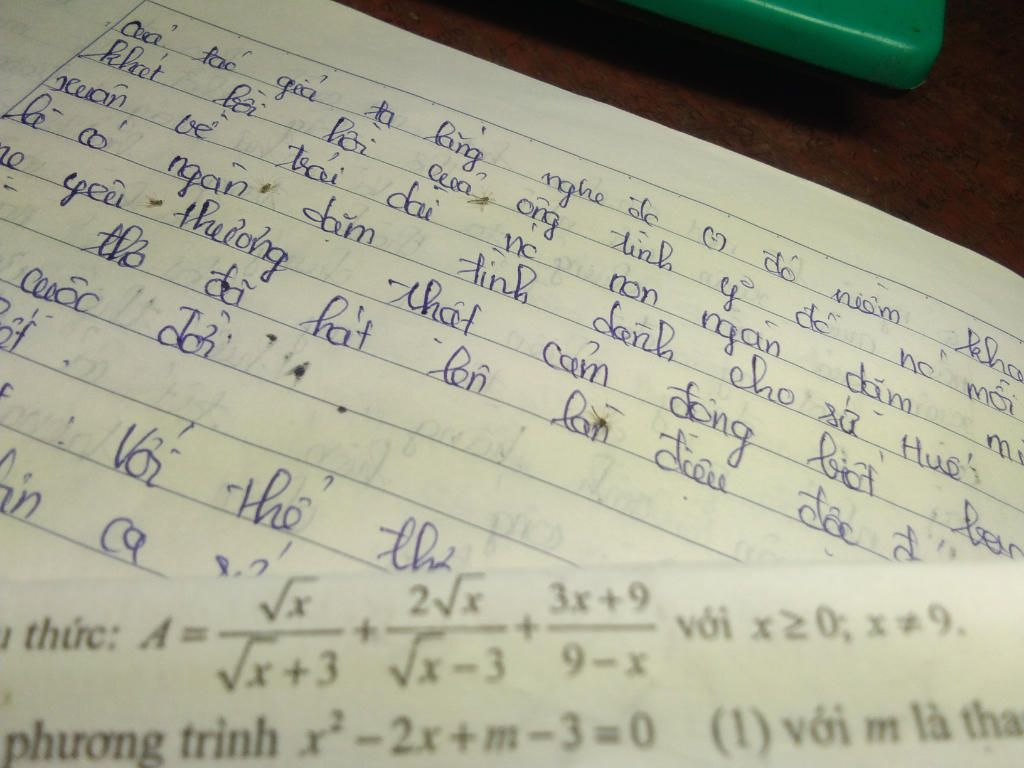 của tác giả ta lắng nghe đc (2) đó niềm kha
khát bồi hồi của ông tình ý để nc mỗi
xuân về trái dài nc non ngàn dặm mì
là có ngàn dặm tình dành cho xứ Huế.
yêu thương thật cảm động biết
thơ đã hát lên làn điệu độc đ
cuộc đời.
Với thể thơ
ca
thức: A = \frac{\sqrt{x}}{\sqrt{x}+3} + \frac{2\sqrt{x}}{\sqrt{x}-3} + \frac{3x+9}{9-x} với x ≥ 0; x ≠ 9.
phương trình x² − 2x + m − 3 = 0 (1) với m là tha